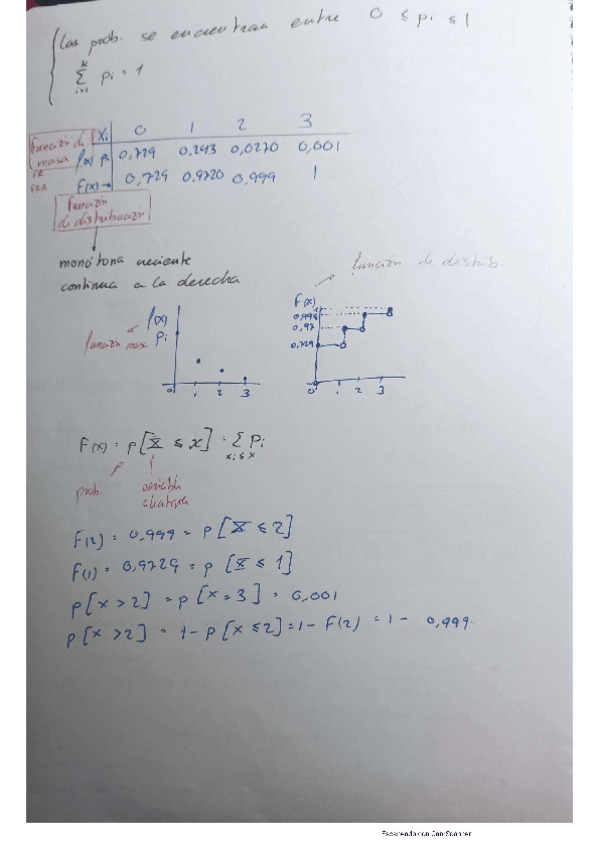 Las prob. se encuentran entre 0 ≤ pi ≤ 1
k
Σ pi = 1
i=1
Xi 0 1 2 3
función de masa f(x) p 0,729 0,243 0,0270 0,001
F(x) → 0,729 0,9720 0,999 1
función de distribución
monótona creciente
continua a la derecha
función de distrib.
f(x)
pi
función masa
0 1 2 3
F(x)
1
0,999
0,97
0,729
0 1 2 3
F(x) = p[X ≤ x] = Σ pi
xi ≤ x
prob. variable
F(2) = 0,999 = p[X ≤ 2]
F(1) = 0,9729 = p[X ≤ 1]
p[x > 2] = p[x = 3] = 0,001
p[x > 2] = 1 - p[x ≤ 2] = 1 - F(2) = 1 - 0,999
Escaneado con CamScanner